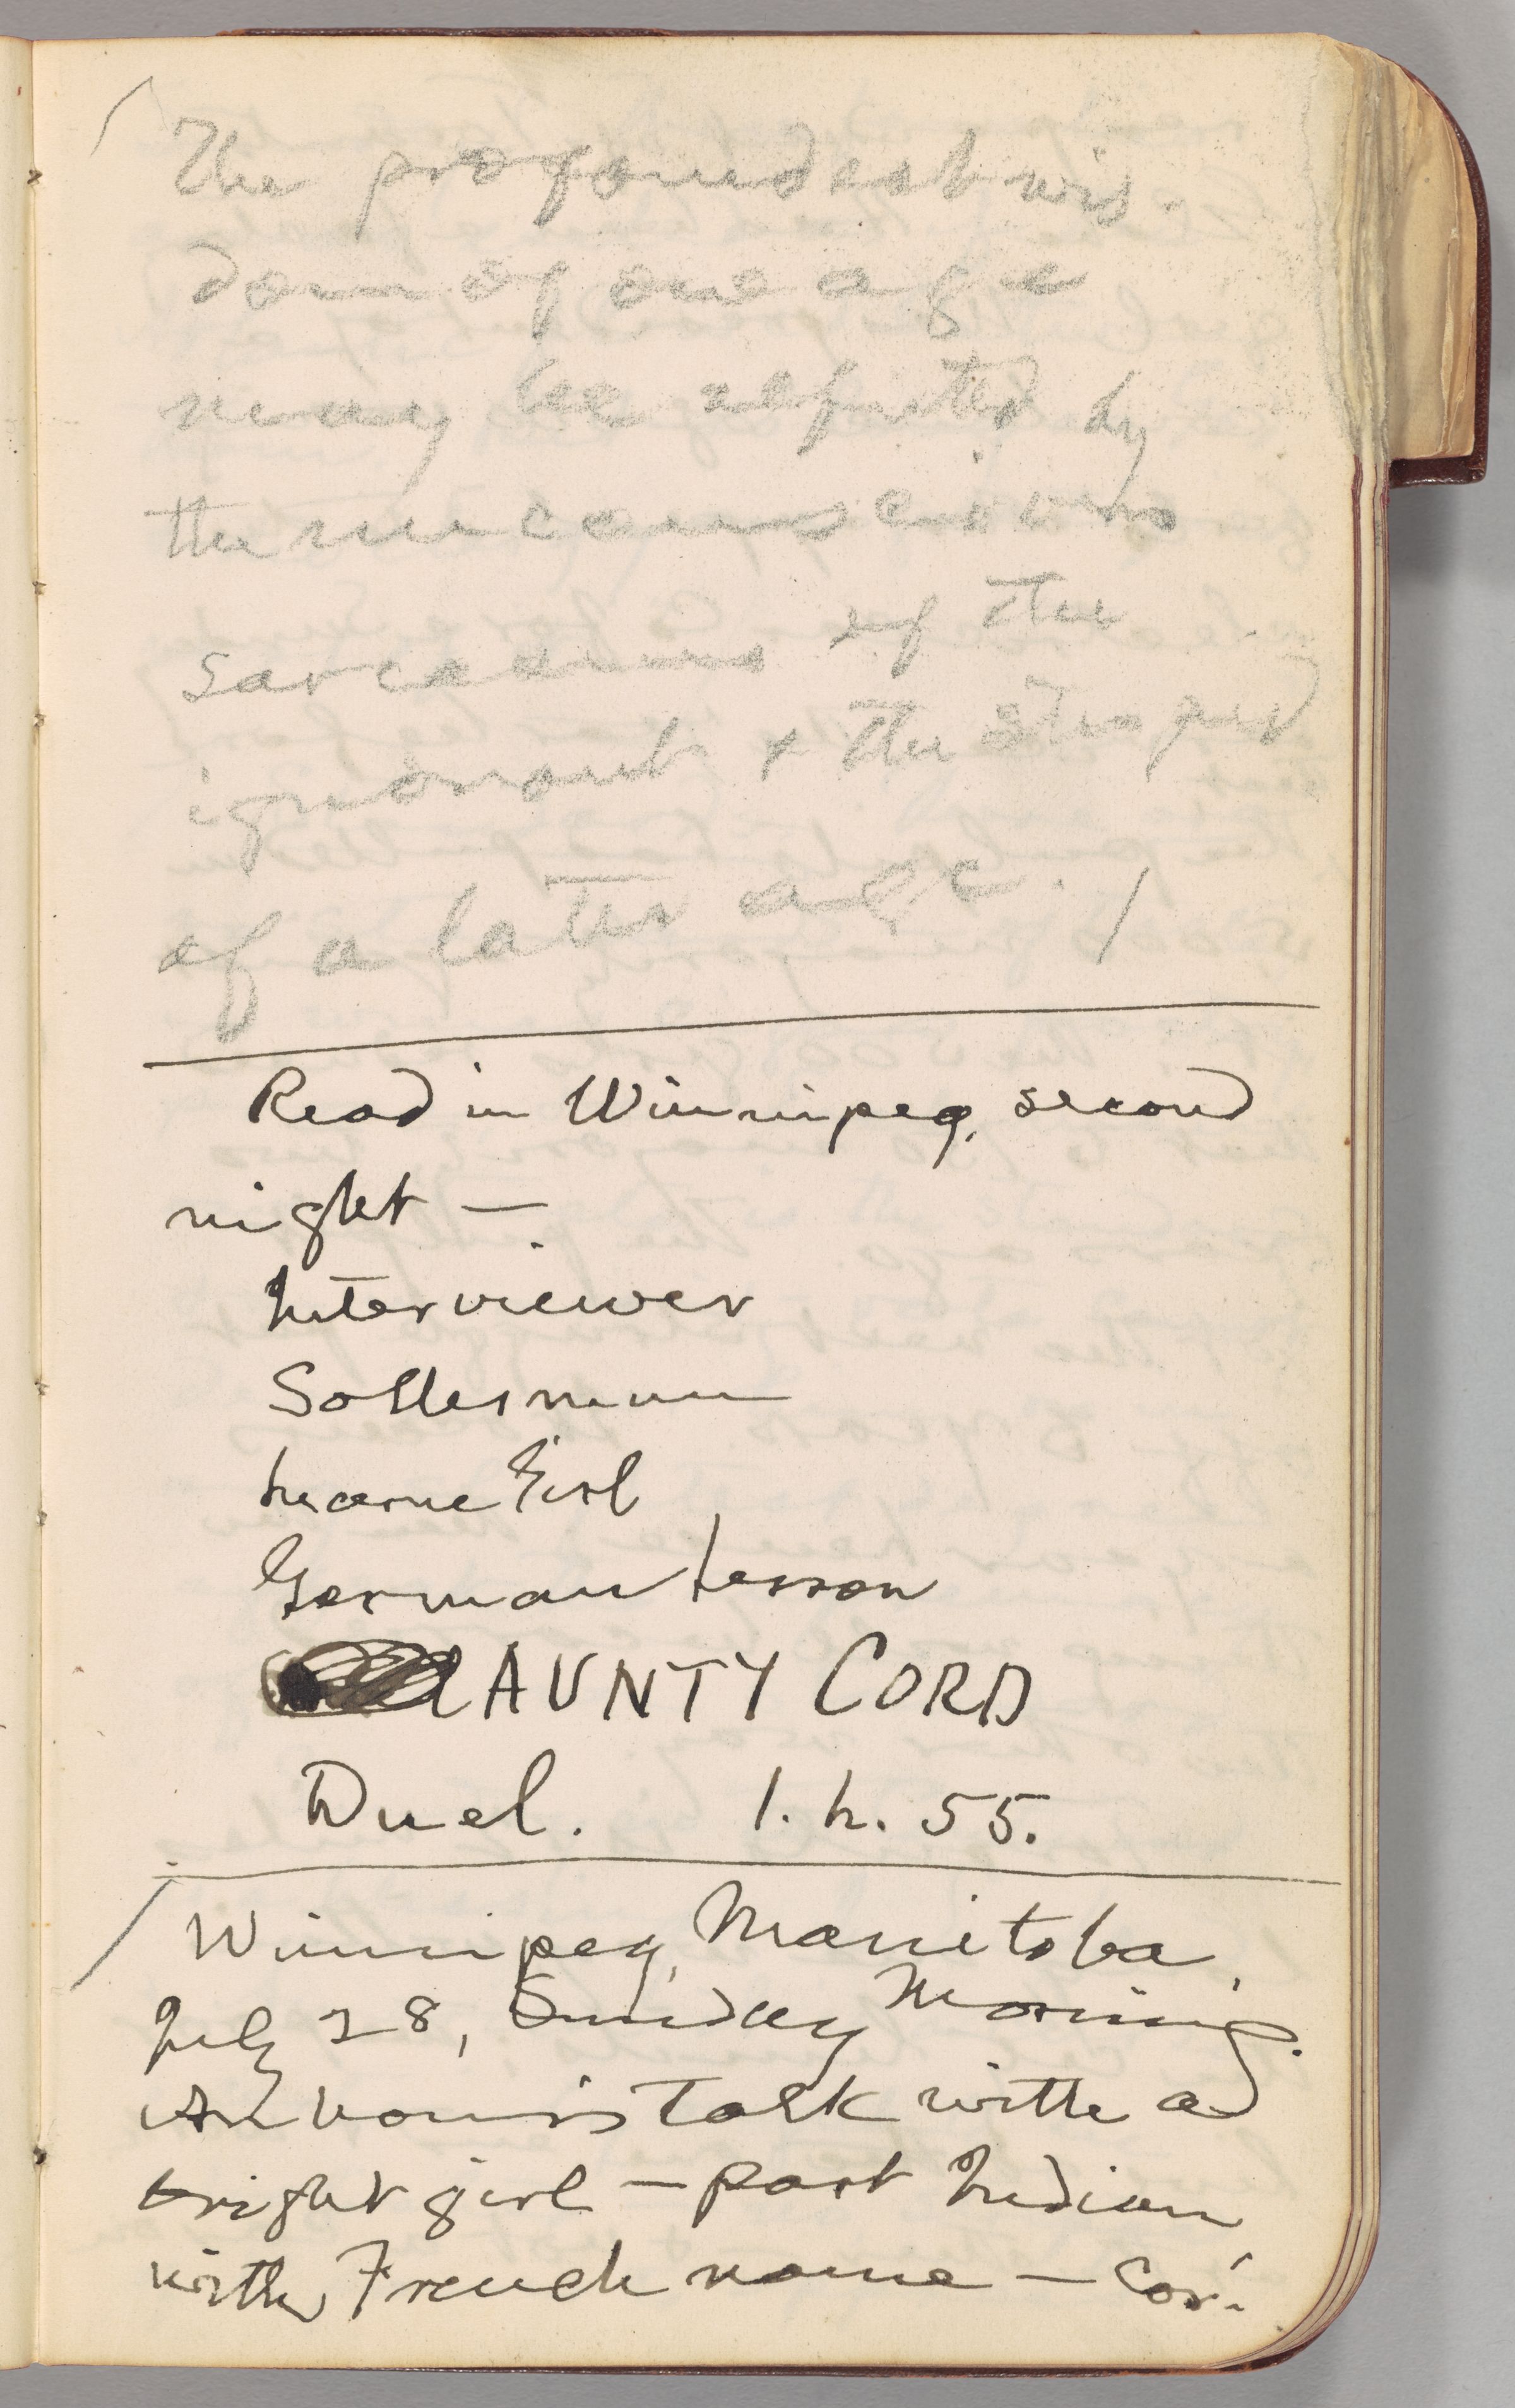 The profoundest wis-
dom of one age
may be refuted by
the unconscious
sarcasms of the
ignorant & the stupid
of a later age. /
Read in Winnipeg, second
night —
Interviewer
Sollerman
Lucerne Girl
German Lesson
AUNTY CORD
Duel. 1. h. 55.
Winnipeg, Manitoba,
July 28, Sunday Morning.
An hour's talk with a
bright girl — part Indian
with French name — Cor-